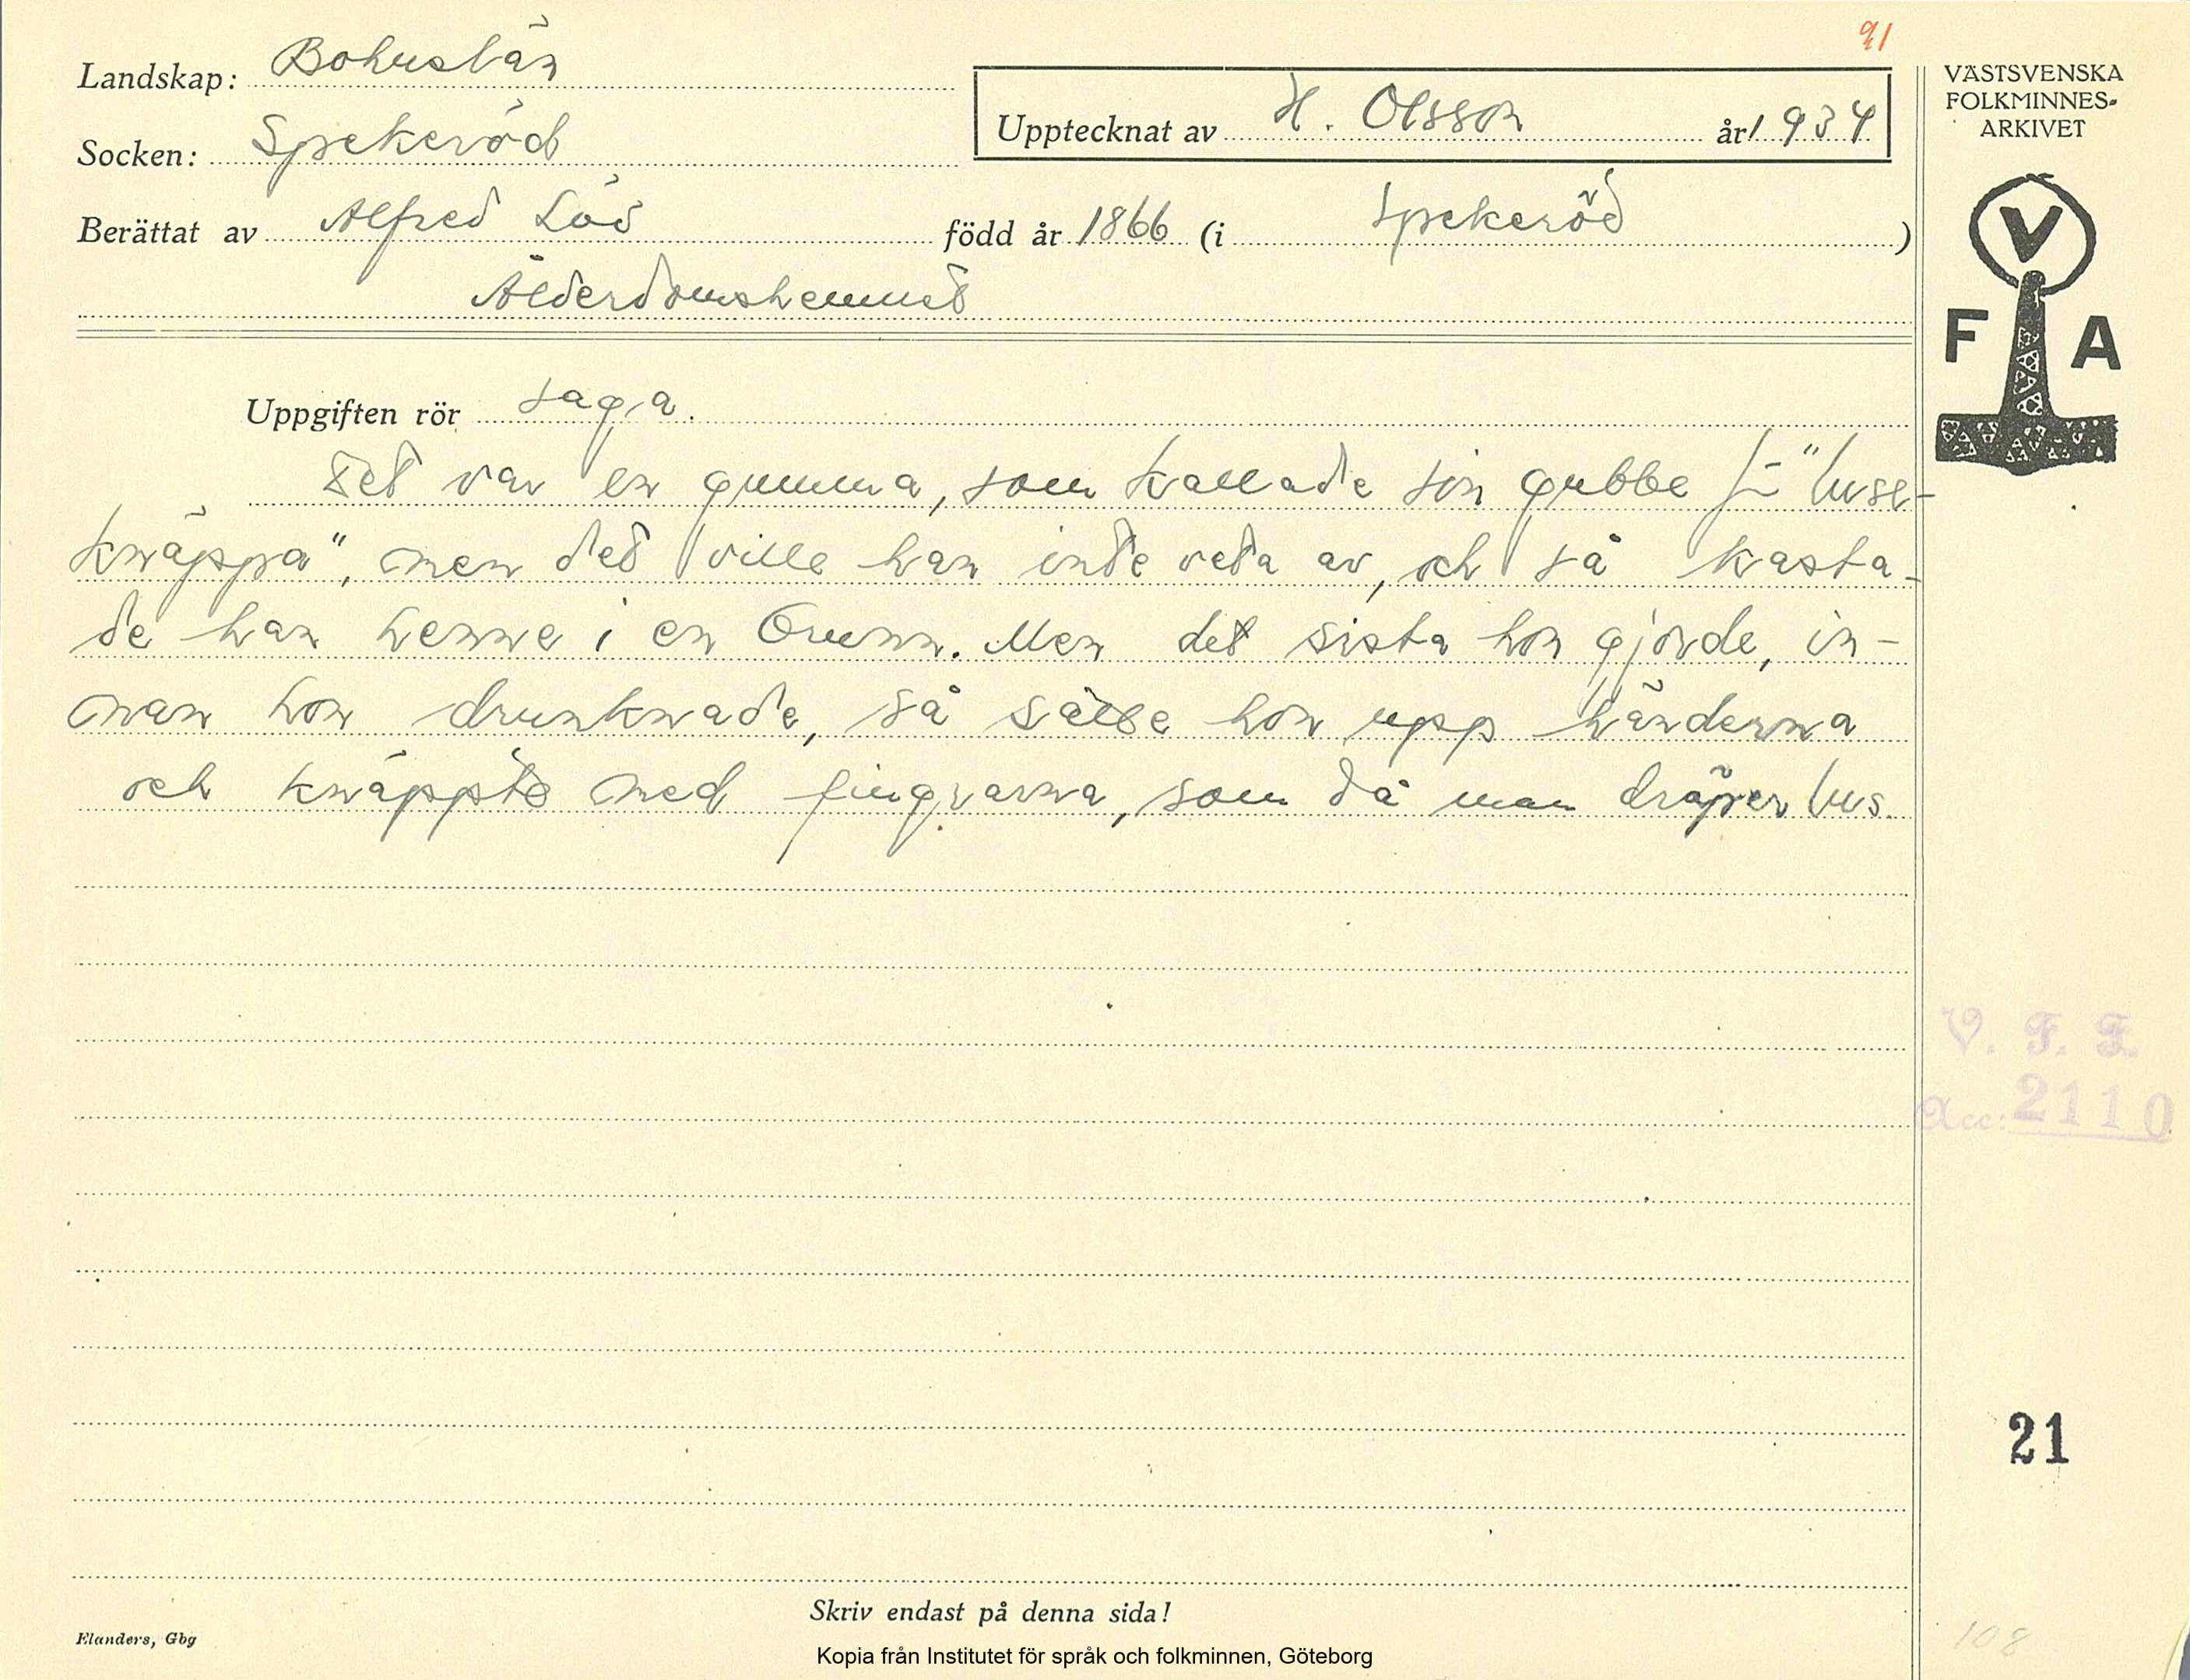 91
Landskap: Bohuslän
Upptecknat av H. Olsson år 1934
Socken: Spekeröd
Berättat av Alfred Löd född år 1866 (i Spekeröd)
Ålderdomshemmet
VÄSTSVENSKA
FOLKMINNES-
ARKIVET
V
F A
Uppgiften rör saga.
Det var en gumma, som kallade sin gubbe för "luse-
knäppa", men det ville han inte veta av, och så kasta-
de han henne i en brunn. Men det sista hon gjorde, in-
nan hon drunknade, så satte hon upp händerna
och knäppte med fingrarna, som då man dräper lus.
V. F. F.
Acc: 2110
21
Skriv endast på denna sida!
Elanders, Gbg
108
Kopia från Institutet för språk och folkminnen, Göteborg